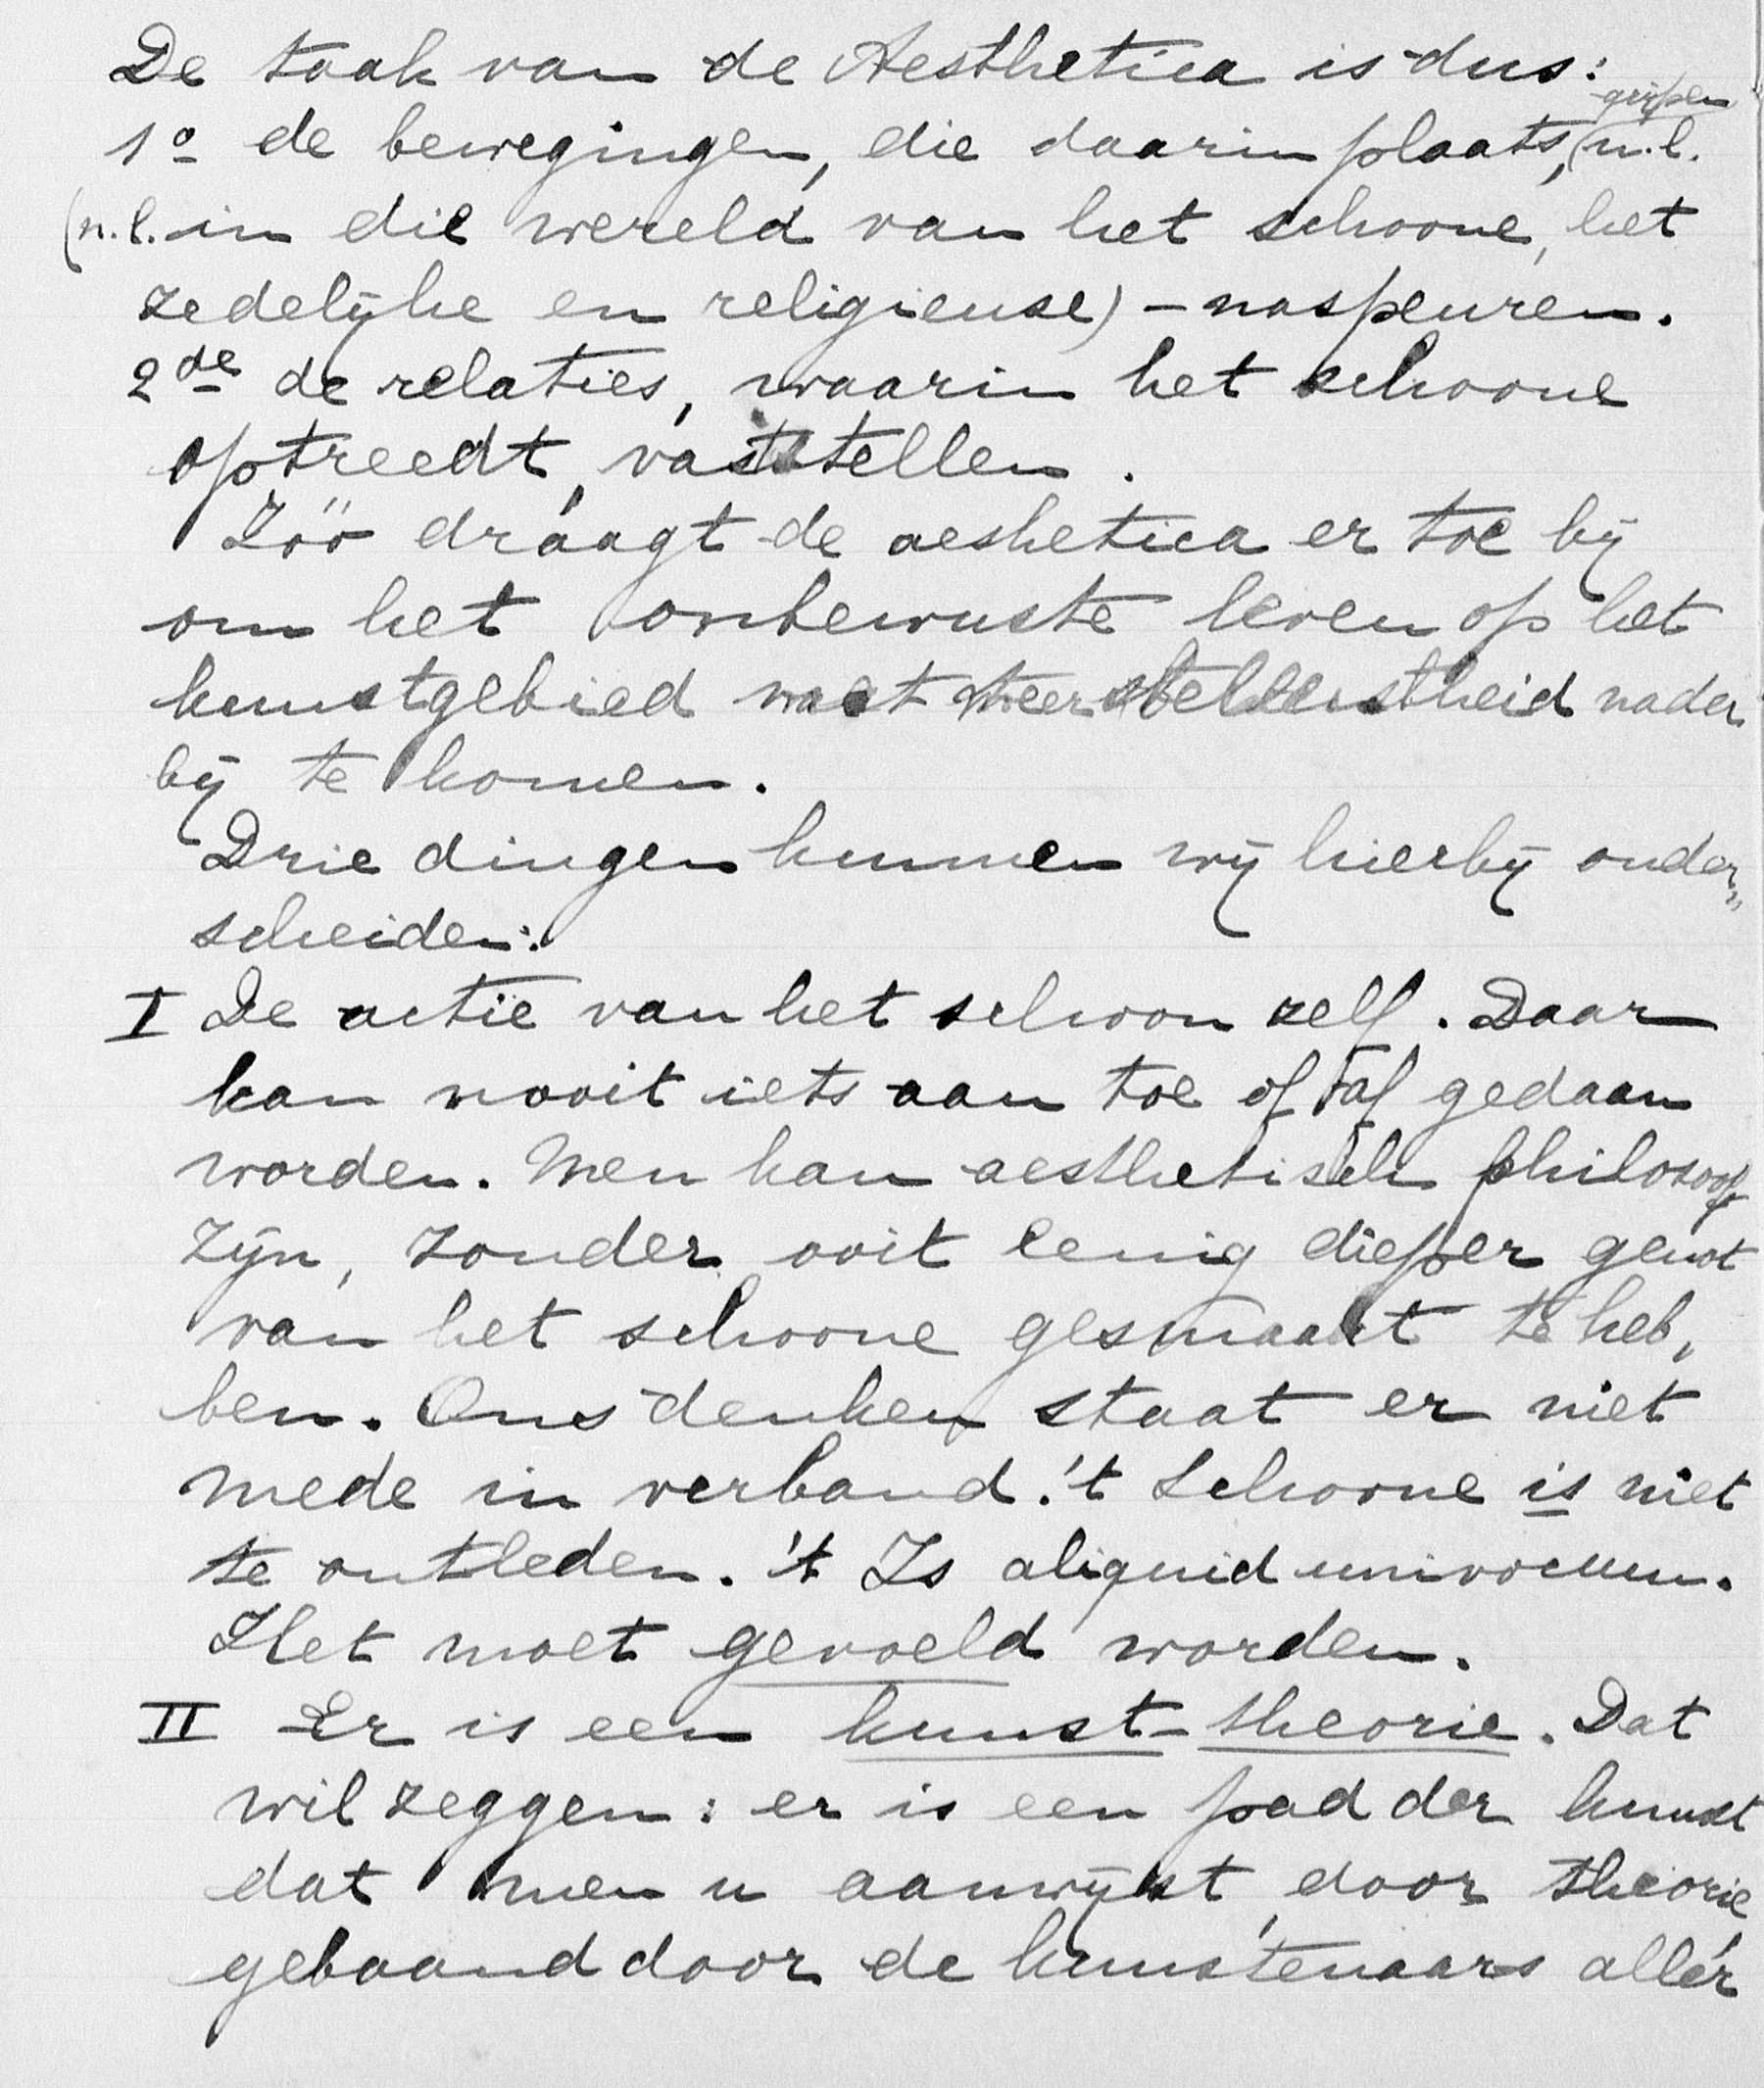 De taak van de Aesthetica is dus:
1º de bewegingen, die daarin plaats, grijpen (n.l.
(n.l. in die wereld van het schoone, het
zedelijke en religieuse) - naspeuren.
2de de relaties, waarin het schoone
optreedt, vaststellen.
Zóó draagt de aeshetica er toe bij
om het onbewuste leven op het
kunstgebied met meer nader
bij te komen.
Drie dingen kunnen wij hierbij onder„
scheiden:
I De actie van het schoon zelf. Daar
kan nooit iets aan toe of af gedaan
worden. Men kan aesthetisch philosoof
zijn, zonder ooit eenig dieper genot
van het schoone gesmaakt te heb„
ben. Ons denken staat er niet
mede in verband. 't Schoone is niet
te ontleden. 't Is aliquid univocum.
Het moet gevoeld worden.
II Er is een kunst-theorie. Dat
wil zeggen: er is een pad der kunst
dat men u aanwijst, door theorie
gebaand door de kunstenaars aller